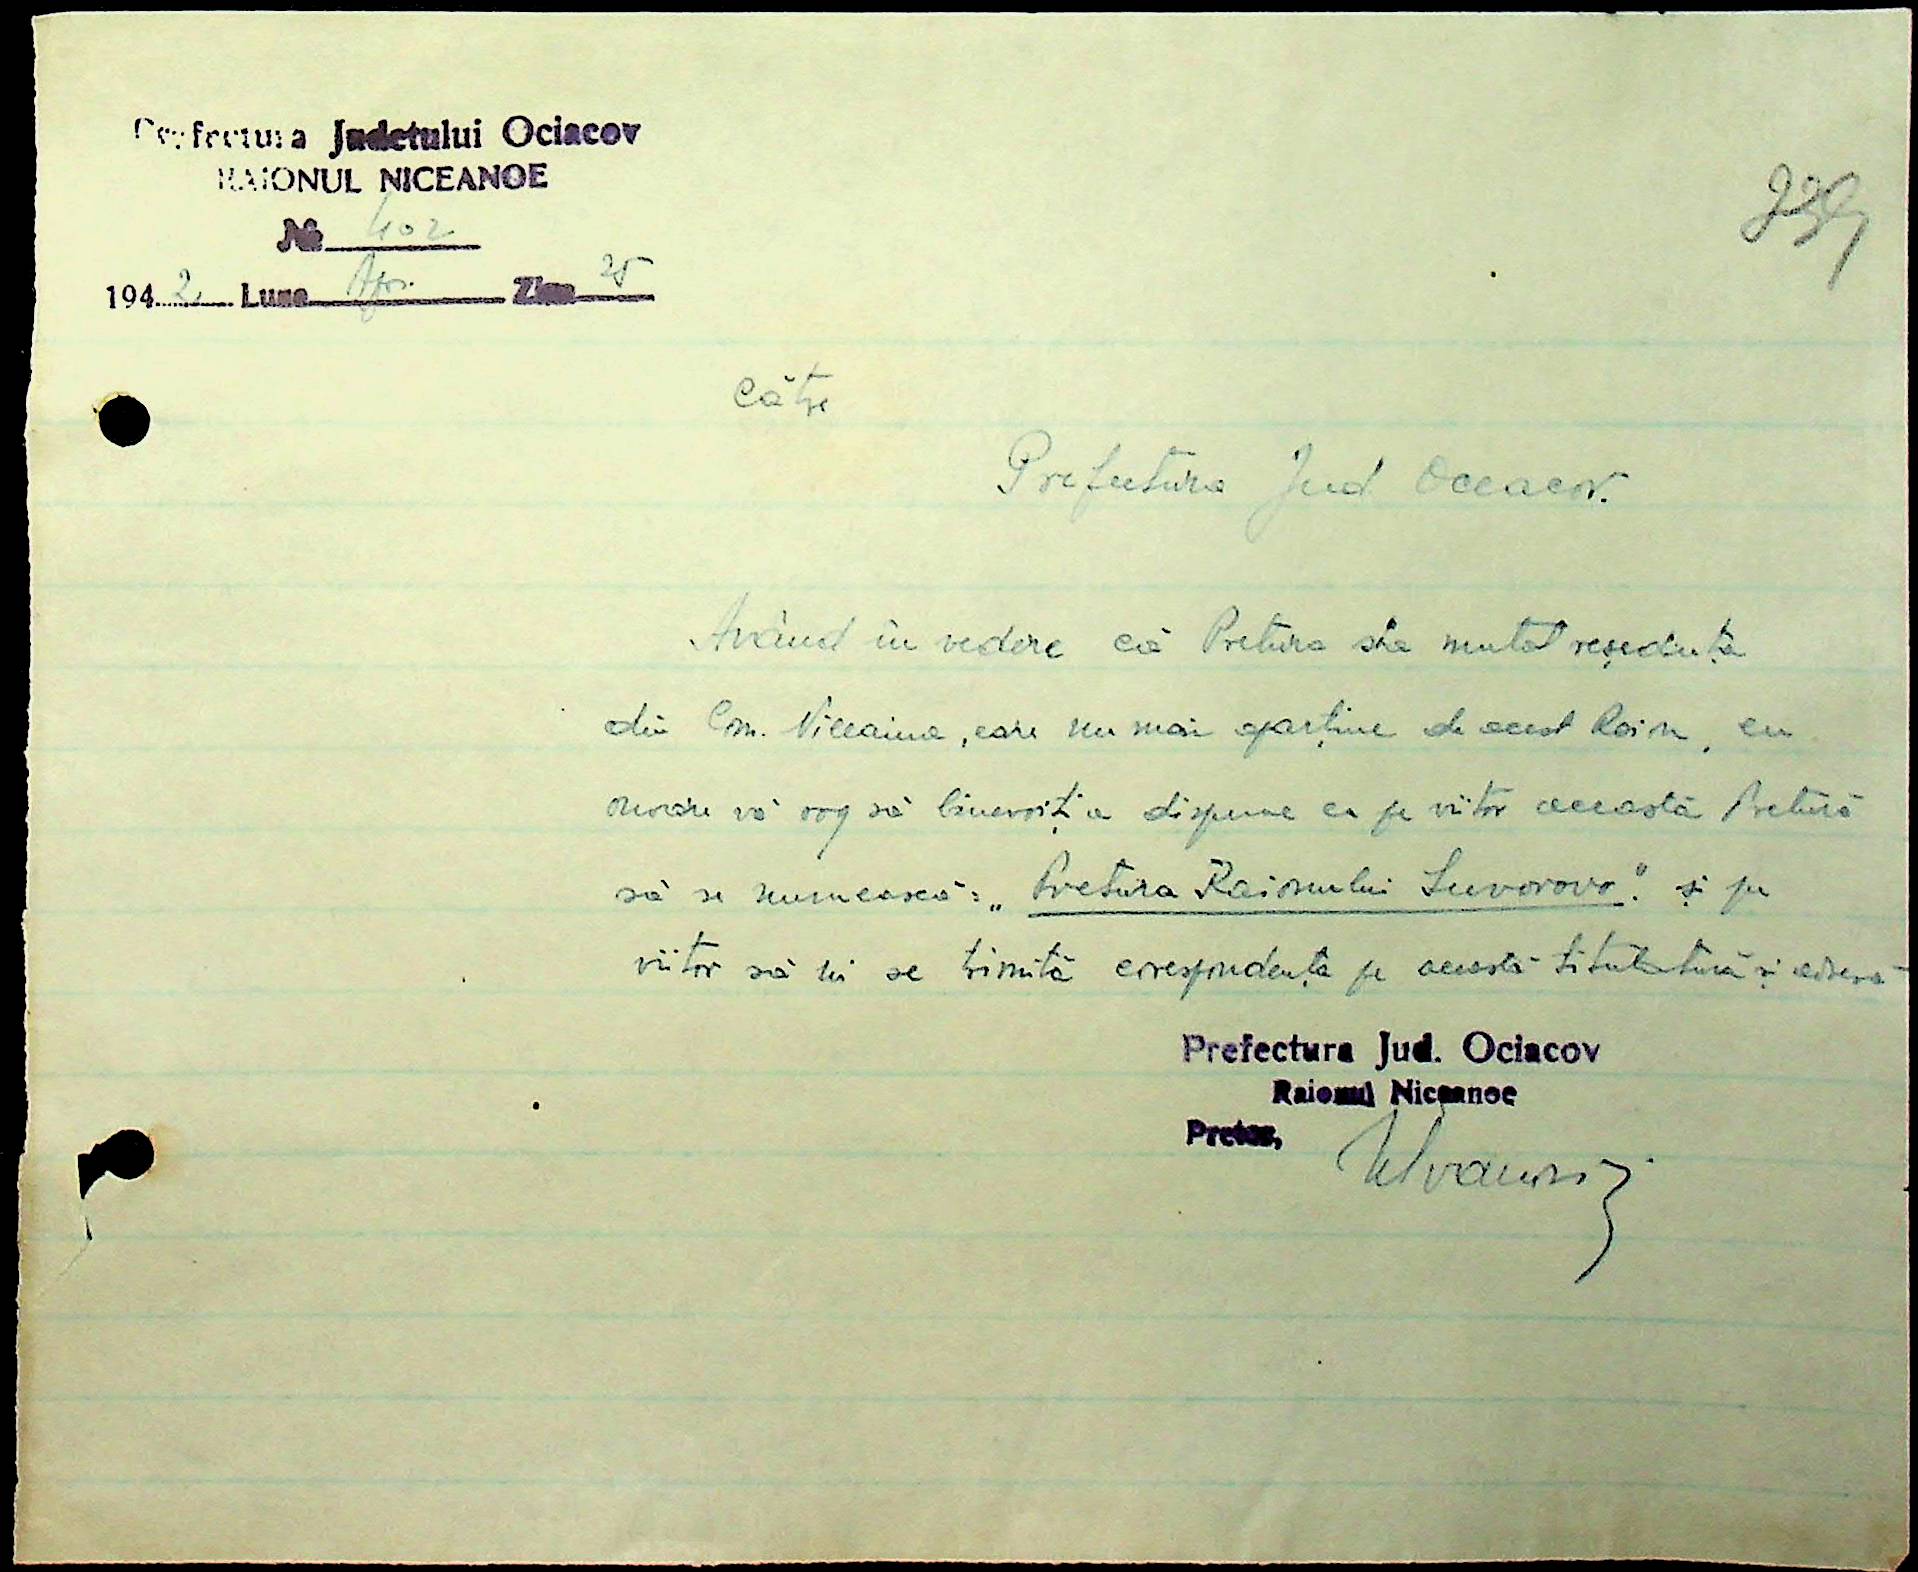 Prefectura Judetului Ociacov
RAIONUL NICEANOE
№ 402
1942 Luna Apr. Ziua 25
239
Către
Prefectura Jud Oceacov.
Având în vedere că Pretura s'a mutat reședința
din Com. Niceaina, care nu mai aparține de acest Raion, cu
onoare vă rog să binevoiți a dispune ca pe viitor această Pretură
să se numească: „Pretura Raionului Suvorovo". și pe
viitor să ni se trimită corespondența pe această titulatură și adresă
Prefectura Jud. Ociacov
Raionul Niceanoe
Pretor,